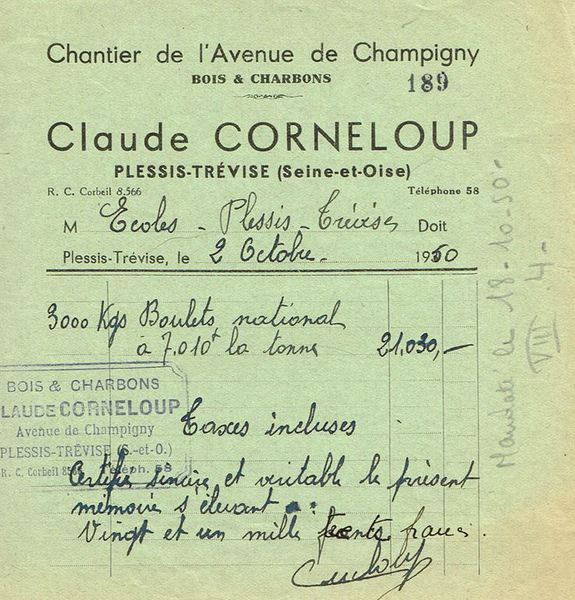 Chantier de l'Avenue de Champigny
BOIS & CHARBONS
189
Claude CORNELOUP
PLESSIS-TRÉVISE (Seine-et-Oise)
R. C. Corbeil 8.566 Téléphone 58
M Ecoles - Plessis - Trévise Doit
Plessis-Trévise, le 2 Octobre - 1950
3000 Kgs Boulets national
à 7.010f la tonne 21.030,-
BOIS & CHARBONS
CLAUDE CORNELOUP
Avenue de Champigny
PLESSIS-TRÉVISE (S.-et-O.)
R. C. Corbeil 8566 Téleph. 58
Taxes incluses
Certifié sincère et véritable le présent
mémoire s'élevant à :
Vingt et un mille trente francs
Mandaté le 18-10-50-
VIII .4-